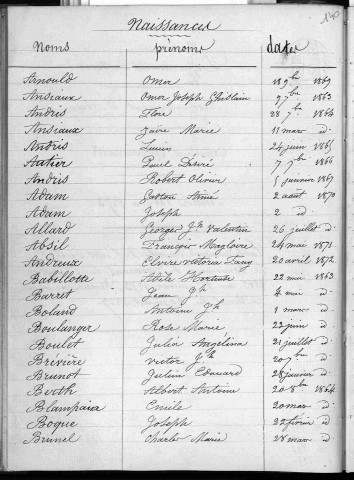 Naissances
Noms prénoms dates
Arnould Omer 18 9bre 1869
Ansiaux Omer Joseph Ghislain 9 7bre 1863
Andris Flore 28 7bre 1864
Ansiaux Marie 11 mars d.
Andris Lucien 24 juin 1865
Autier Paul Désiré 7 7bre 1866
Andris Robert Olivier 5 janvier 1867
Adam Gaston Aimé 2 août 1870
Adam Joseph 2 d
Allard Georges Jh Valentin 26 juillet d.
Absil François Magloire 24 mai 1871
Andreux Elvire Victoire 20 avril 1872
Babillotte Adèle Hortense 22 mai 1863
Barret Jean Jh 4 mai d
Boland Antoine Jh 1 mars d
Boulanger Rose Marie 22 juin d.
Boulet Julie Angelina 21 juillet d
Brévière Victor Jh 20 7bre d.
Brunot Julien Edouard 28 janvier d.
Berth Albert Antoine 20 8bre 1864
Blampain Emile 20 mars d.
Bogue Joseph 22 février d
Brunel Charles Marie 28 mars d.